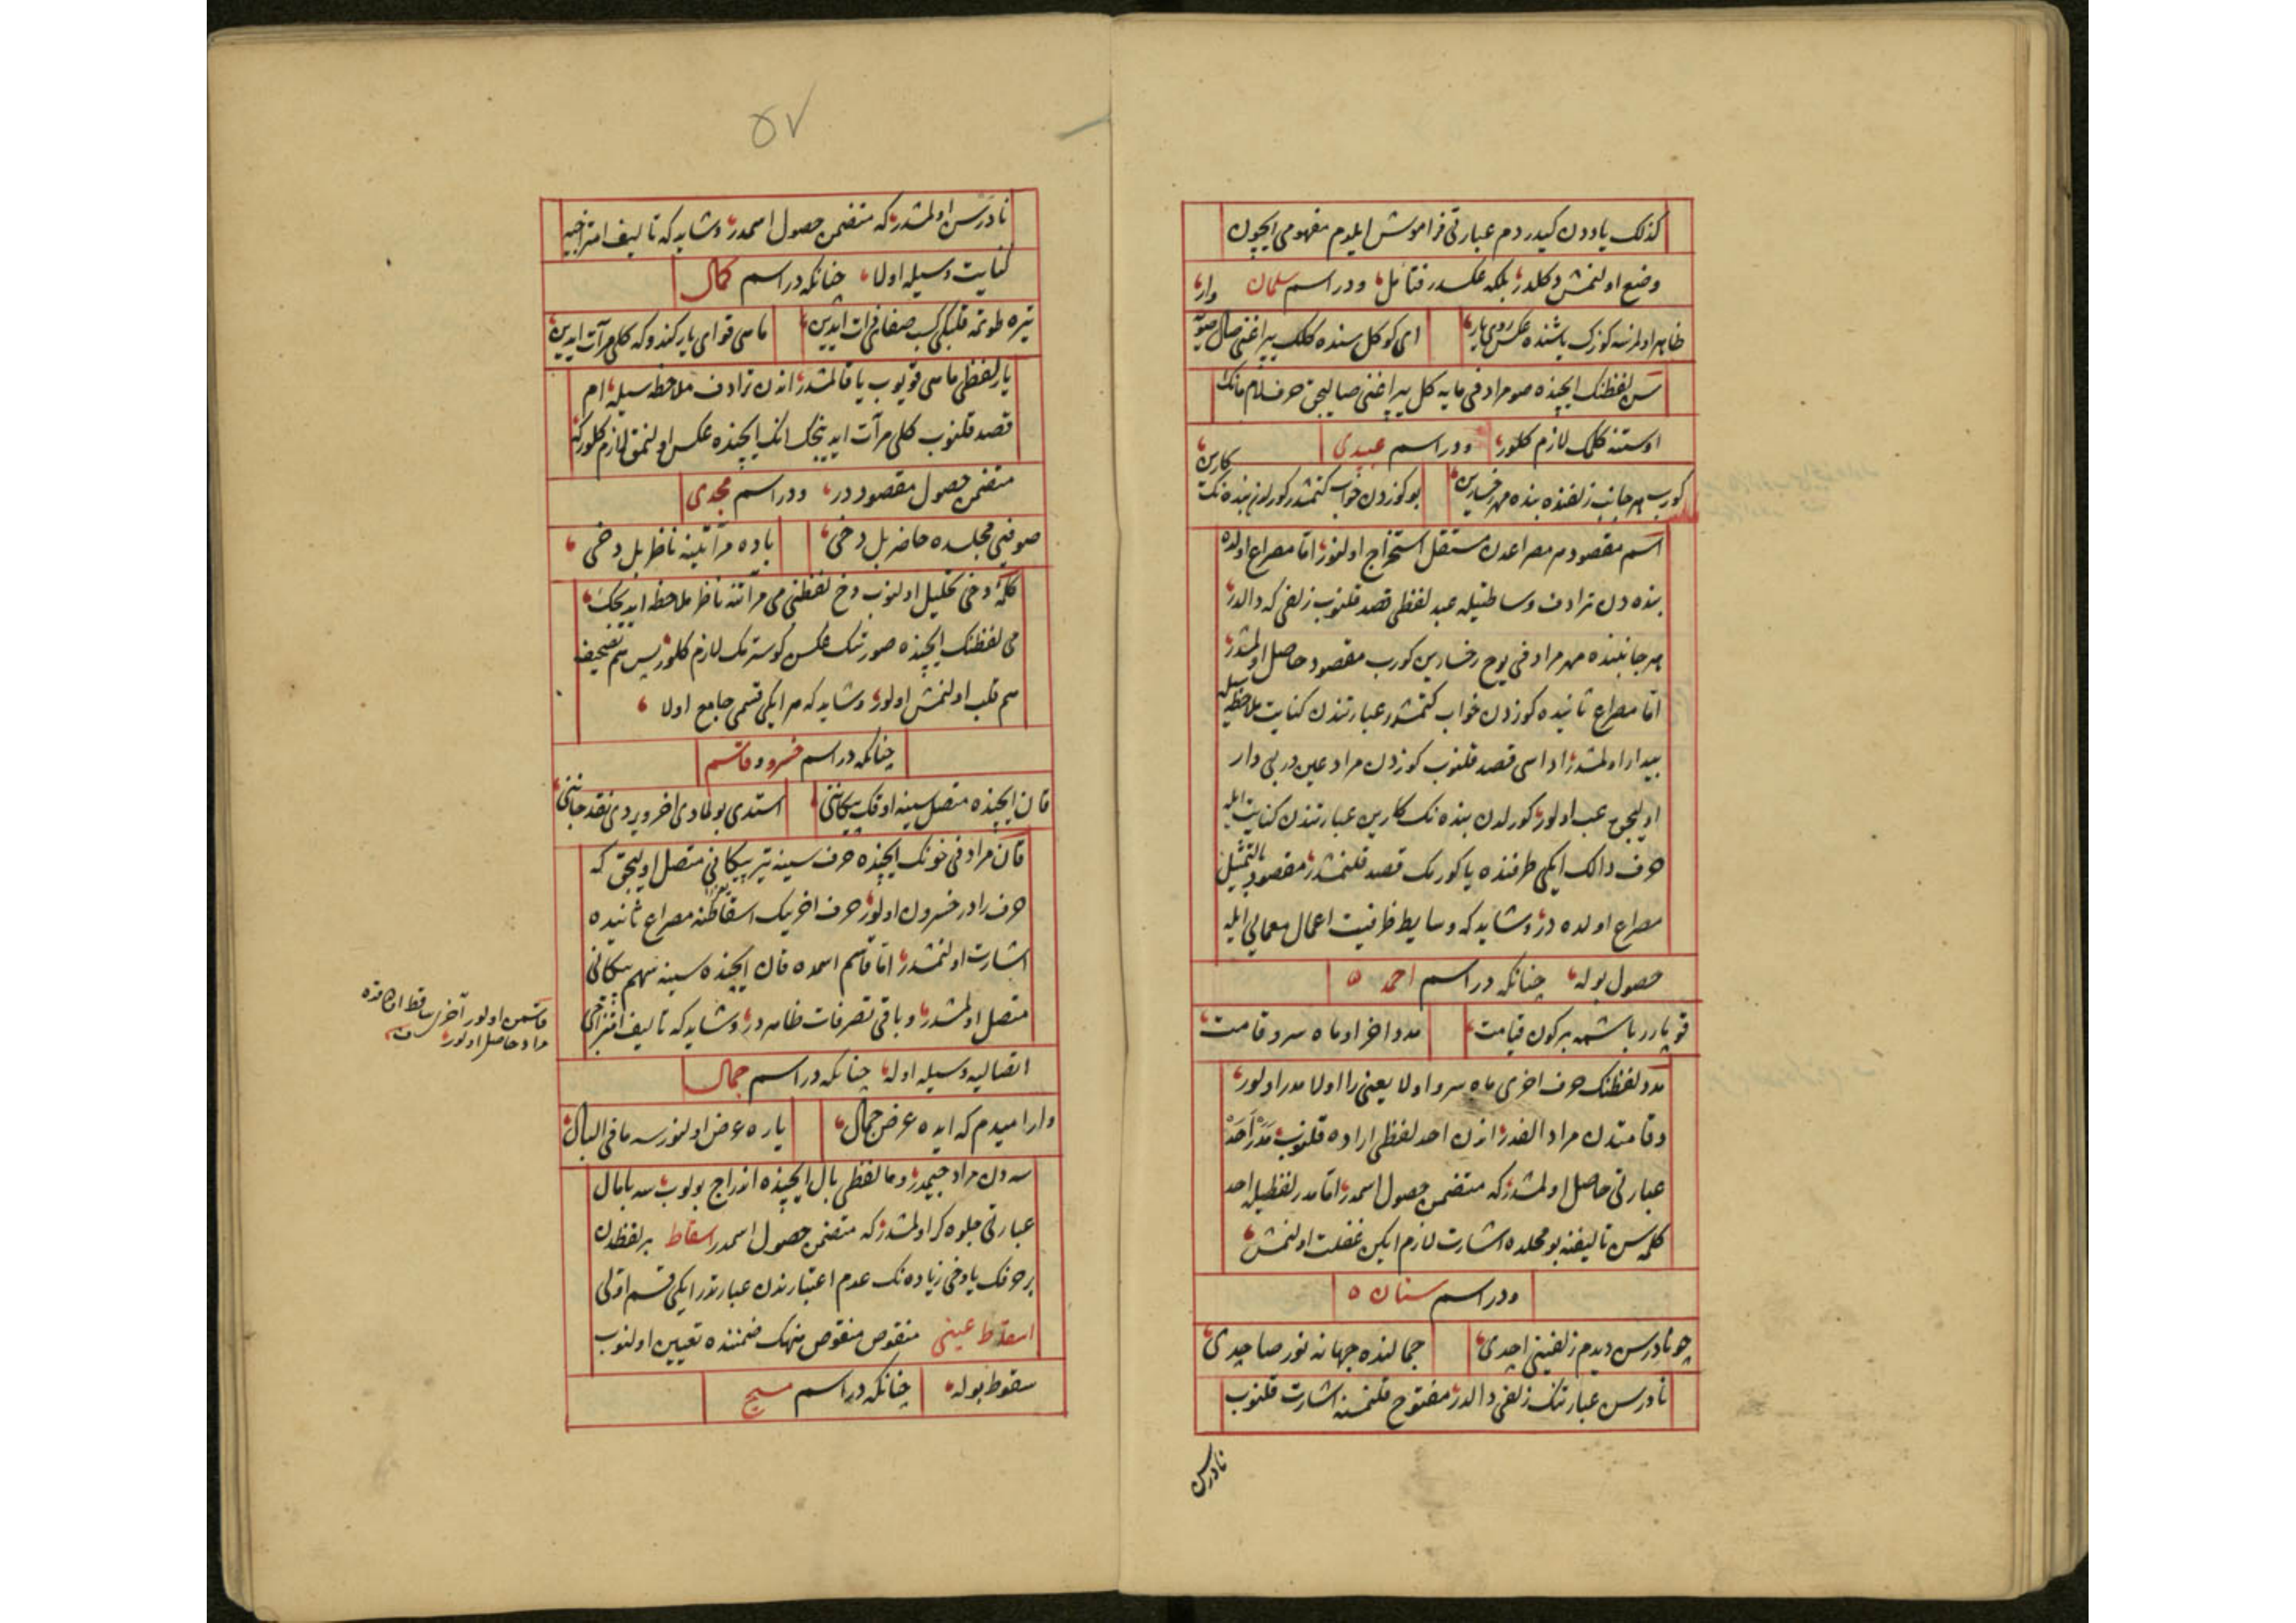 كذلك یاددن كیدردم عبارتی فراموش ایلدم مفهومی ایچون
وضع اولنمش دكلدر بلكه عكسدر فتأمل ودر اسم سلمان
ظاهر اولرسه كوزك یاشنده عكس روی یار
ای كوكل سنده كلك یپراغنی صال صویه وار
سن لفظنك ایچنده صو مرادفی مایه كل یپراغنی صالیجق حرف لام مانك
اوستنه كلمك لازم كلور ودر اسم عبیدی
كورب هر جانب زلفنده بنده مهر رخسارین
بو كوزدن خواب كتمشدر كورلدن بنده نك كارین
اسم مقصود هر مصراعدن مستقل استخراج اولنور اما مصراع اولده
بنده دن ترادف وساطتیله عبد لفظی قصد قلنوب زلفی كه دالدر
هر جانبنده مهر مرادفی یوح رخسارین كورب مقصود حاصل اولمشدر
اما مصراع ثانیده كوزدن خواب كتمشدر عبارتندن كنایت ملاحظه سیله
بیدار اولمشدر اداسی قصد قلنوب كوزدن مراد عین در بی دار
اولیجق عب اولور كورلدن بنده نك كارین عبارتندن كنایت ایله
حرف دالك ایكی طرفنده یا كورمك قصد قلنمشدر مقصود بالتمثیل
مصراع اولده در وشاید كه وسایط ظرفیت اعمال معمایی ایله
حصول بوله چنانكه در اسم احمد
قوپارر باشمه بر كون قیامت
مدد اخر او ماه سرو قامت
مدد لفظنك حرف اخری ماه سرو اولا یعنی را اولا مدر اولور
وقامتدن مراد الفدر اندن احد لفظی اراده قلنوب مدر احد
عبارتی حاصل اولمشدر كه متضمن حصول اسمدر اما مدر لفظیله احد
كلمه سن تالیفنه بو محلده اشارت لازم ایكن غفلت اولنمش
ودر اسم سنان
چو نادرسن دیدم زلفینی اچدی
جمالنده جهانه نور صاچدی
نادرسن عبارتنك زلفی دالدر مفتوح قلنمسنه اشارت قلنوب
نادرس
٥٧
نادرسن اولمشدر كه متضمن حصول اسمدر وشاید كه تالیف امتزاجیه
كنایت وسیله اولا چنانكه در اسم كمال
تیره طوتمه قلبكی كسب صفا فرات ایدین
ماسی قو ای یار كندوكه كلی مرآت ایدین
یار لفظی ماسی قویوب یا قالمشدر اندن ترادف ملاحظه سیله ام
قصد قلنوب كلی مرآت ایدینجك انك ایچنده عكس اولنمق لازم كلور كه
متضمن حصول مقصوددر ودر اسم مجدی
صوفیی مجلسده حاضر بل دخی
باده مرآتینه ناظر بل دخی
كلمهٔ دخی تحلیل اولنوب دخ لفظنی می مرآتنه ناظر ملاحظه ایدیجك
می لفظنك ایچنده صورتك عكس كوسترمك لازم كلور پس هم تصحیف
هم قلب اولنمش اولور وشاید كه هر ایكی قسمی جامع اولا
چنانكه در اسم خسرو وقاسم
قان ایچنده متصل سینه اوقك پیكاننی
استدی بولمادی اخر ویردی نقد جاننی
قان مرادفی خونك ایچنده حرف سینه تیر پیكانی متصل اولیجق كه
حرف رادر خسرون اولور حرف اخرینك اسقاطنه مصراع ثانیده
اشارت اولنمشدر اما قاسم اسمده قان ایچنده سینه سهم پیكانی
متصل اولمشدر وباقی تصرفات ظاهر در وشاید كه تالیف امتزاجی
قاسمن اولور آخری ساقط اولاقده
مراد حاصل اولور
اتصالیه وسیله اوله چنانكه در اسم جمال
وار امیدم كه ایده عرض جمال
یاره عرض اولنورسه ما فی البال
سه دن مراد جیمدر وما لفظی بال ایچنده اندراج بولوب سه بامال
عبارتی جلوه كر اولمشدر كه متضمن حصول اسمدر اسقاط بر لفظدن
بر حرفك یا دخی زیاده نك عدم اعتبارندن عبارتدر ایكی قسم اولی
اسقاط عینی منقوص منقوص منهك ضمننده تعیین اولنوب
سقوط بوله چنانكه در اسم مسیح